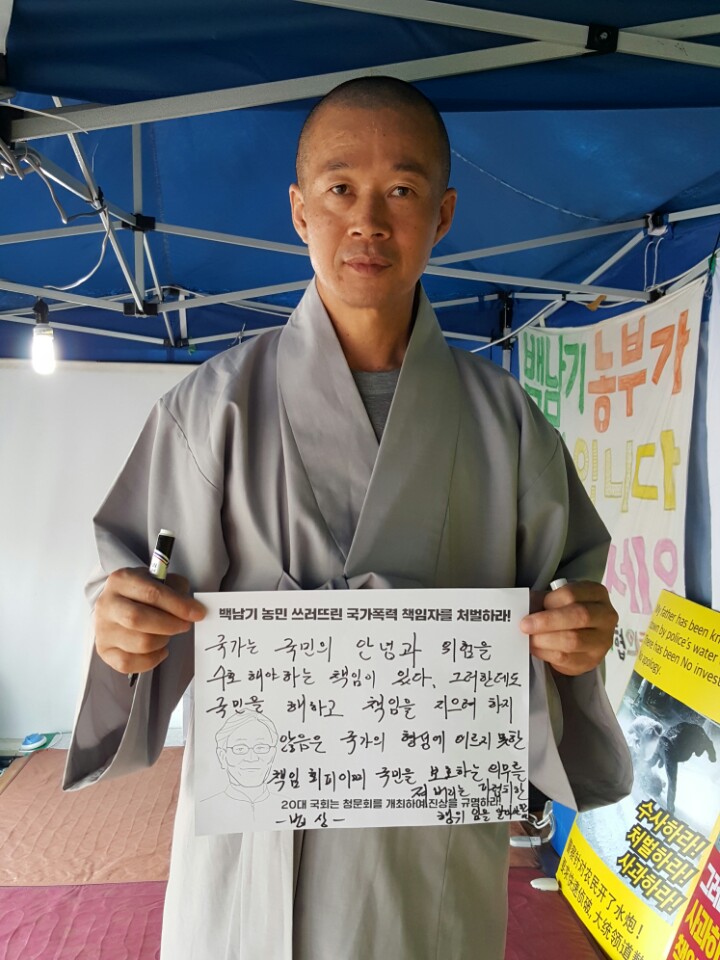 백남기 농민 쓰러뜨린 국가폭력 책임자를 처벌하라!
국가는 국민의 안녕과 위험을
수호 해야하는 책임이 있다. 그러한데도
국민을 해하고 책임을 지으려 하지
않음은 국가의 형성에 이르지 못한
책임 회피이며 국민을 보호하는 의무를
저 버리는
행위 임을
20대 국회는 청문회를 개최하여 진상을 규명하라!
- 법 상 -
백남기 농부가
입니다
세요
father has been
by police's water
has been No
apology.
수사하라!
처벌하라!
사과하라!
针对农民开了水炮!
大统领道
사과하
책임